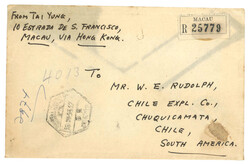 From Tai Yune,
10 Estrada de S. Francisco,
Macau, via Hong Kong.
MACAU
R 25779
4013
To
Mr. W. E. Rudolph,
Chile Expl. Co.,
Chuquicamata,
Chile,
South America.